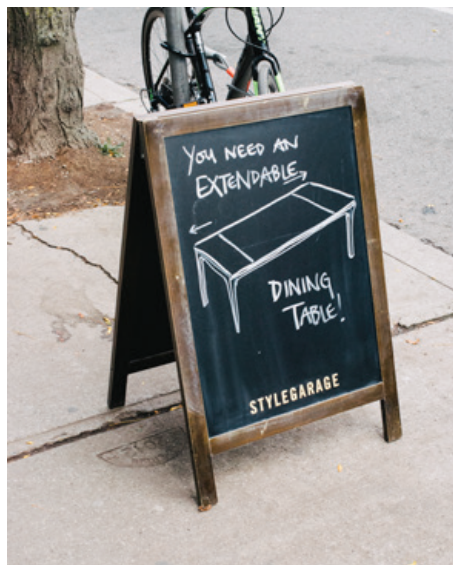 YOU NEED AN
EXTENDABLE
DINING
TABLE!
STYLEGARAGE